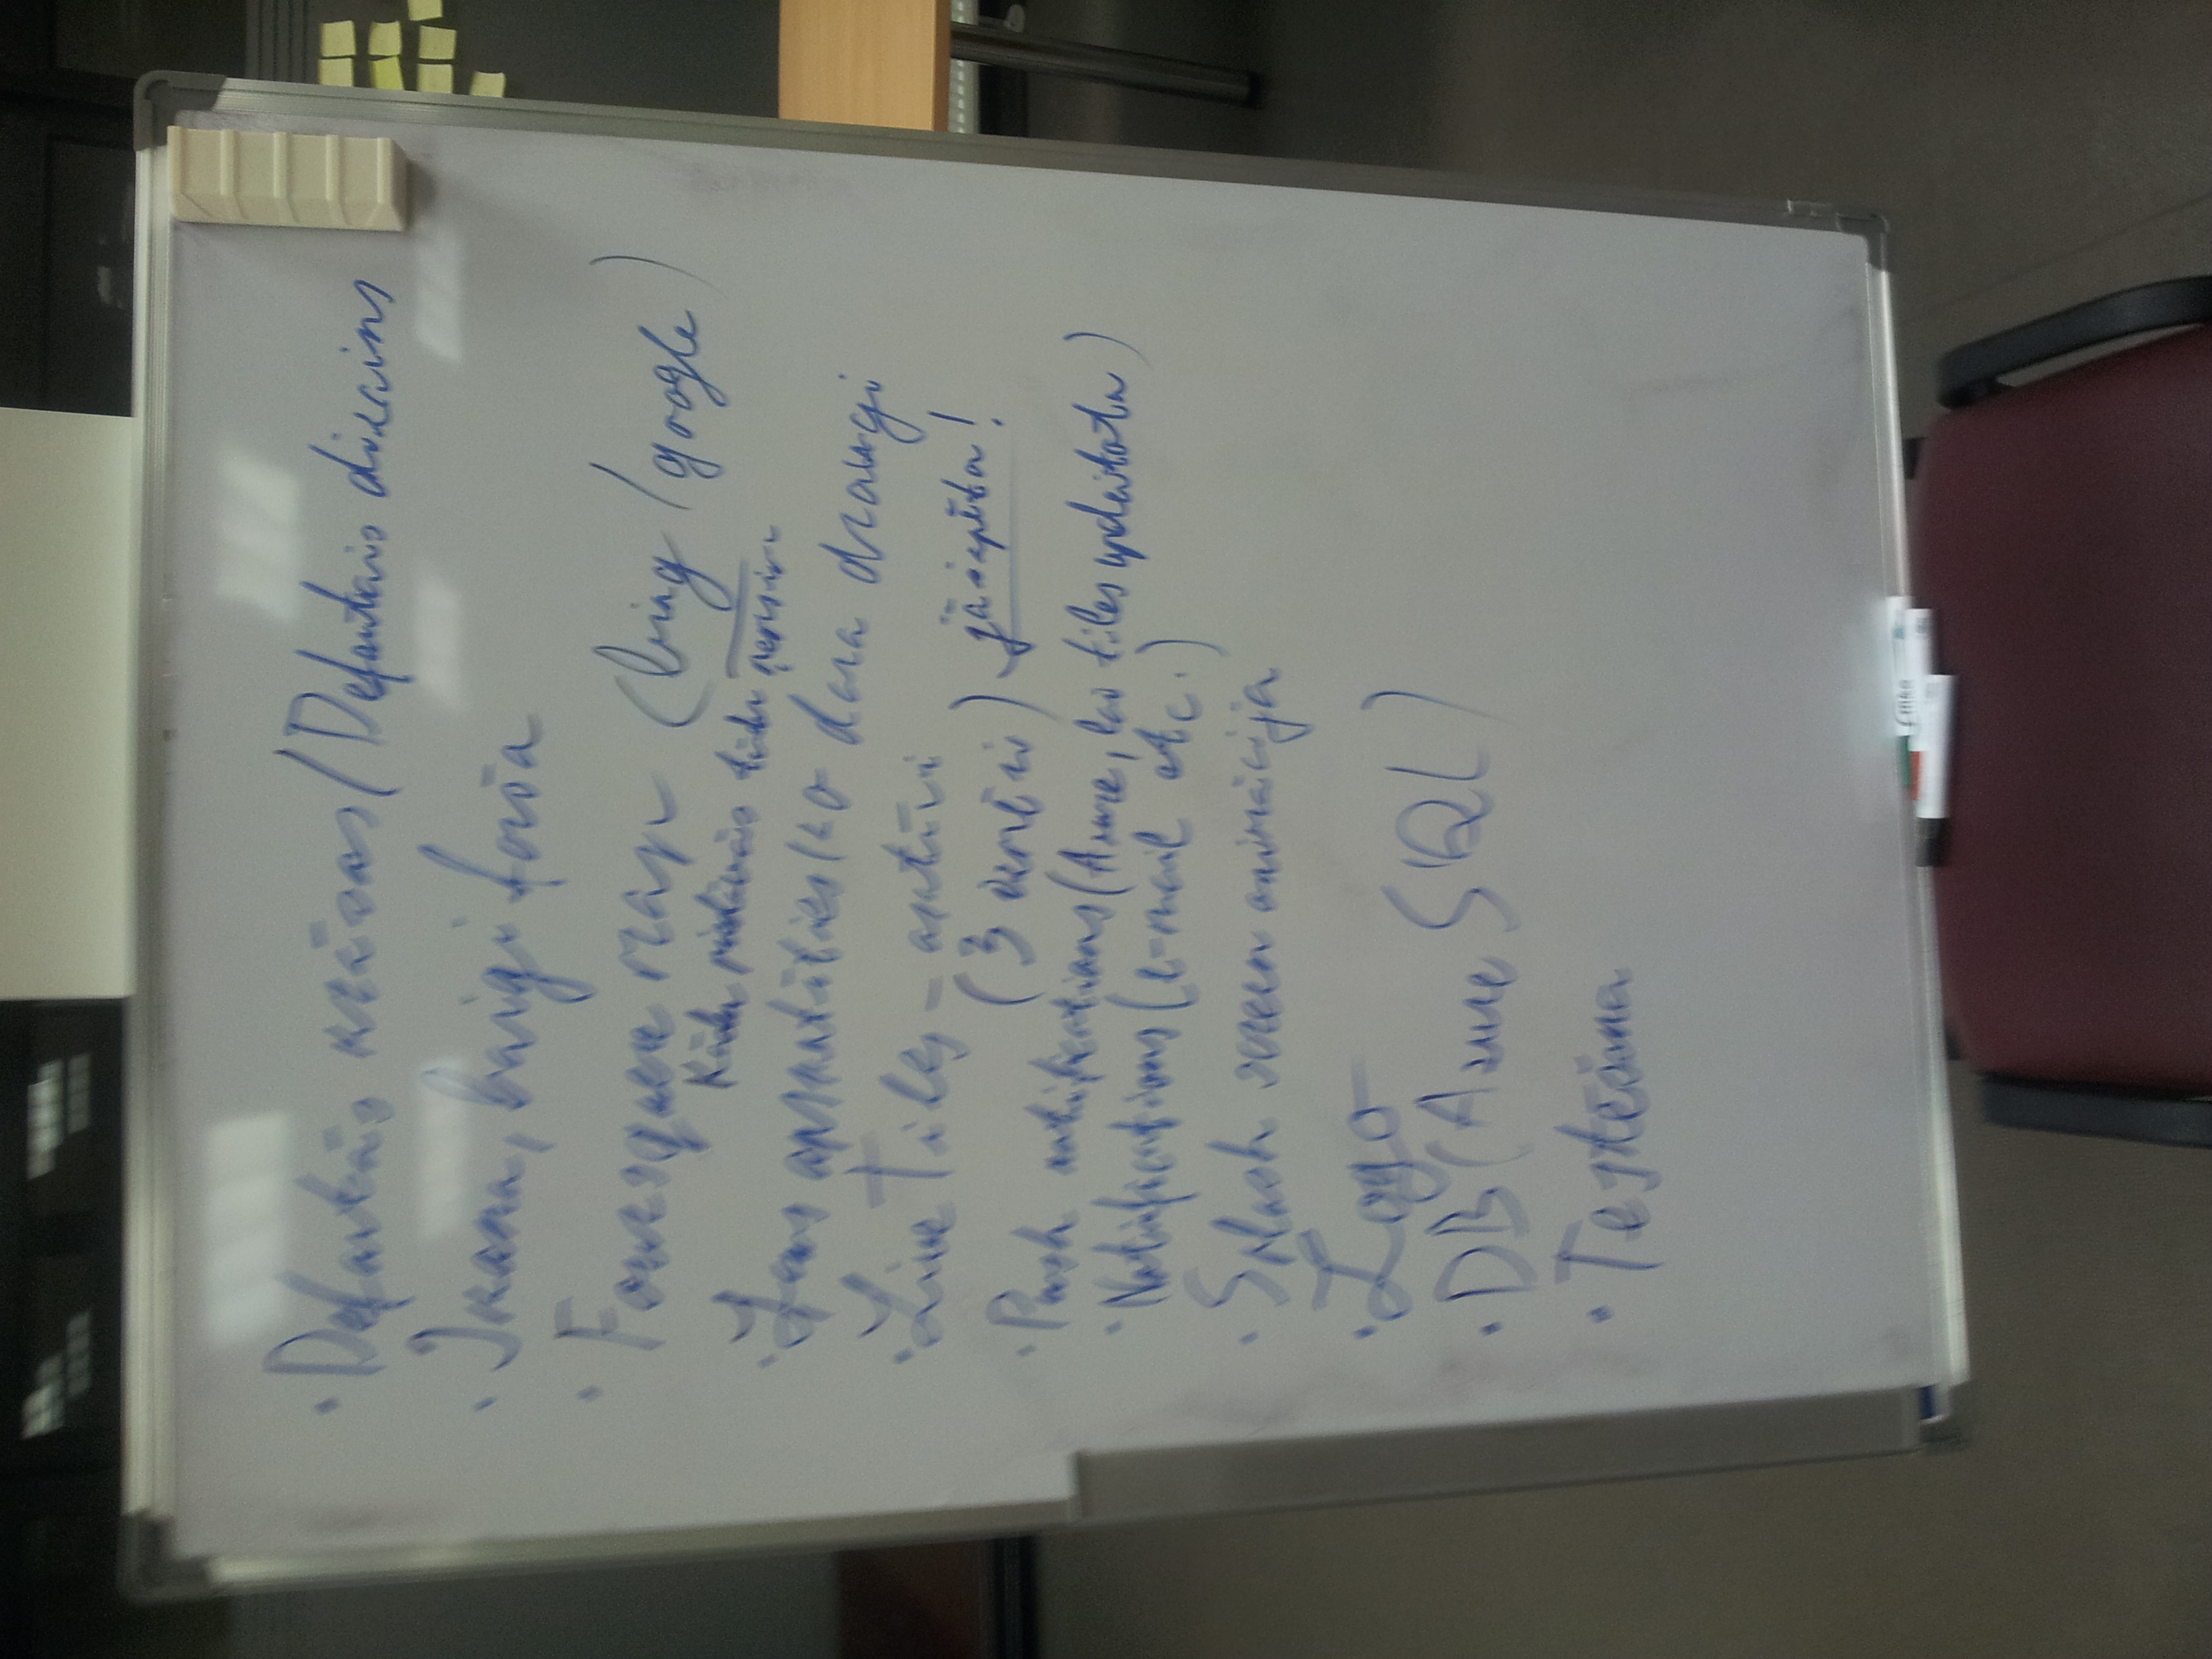 · Defaultās krāsas / Defaultais dizains
· Ikona, baigi forša
· Foursquare map (bing / google)
Kādu piedāvās tādu ņemsim
· Lens apskatīties ko dara draugi
· Live Tiles - aktīvi
(3 izmēri) jāiepēta!
· Push notifications (Azure, lai tiles updeitotu)
· Notifications (e-mail etc.)
· Splash screen animācija
· Logo
· DB (Azure SQL)
· Testēšana